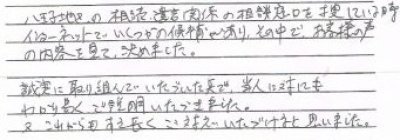 八王子地区の相続・遺言関係の相談窓口を捜している時
インターネットでいくつかの候補があり、その中で、お客様の声
の内容を見て、決めました。
誠実に取り組んでいただいた点で、当人に対しても
わかり易くご説明いただきました。
又これからも末長くご支えいただけると思いました。